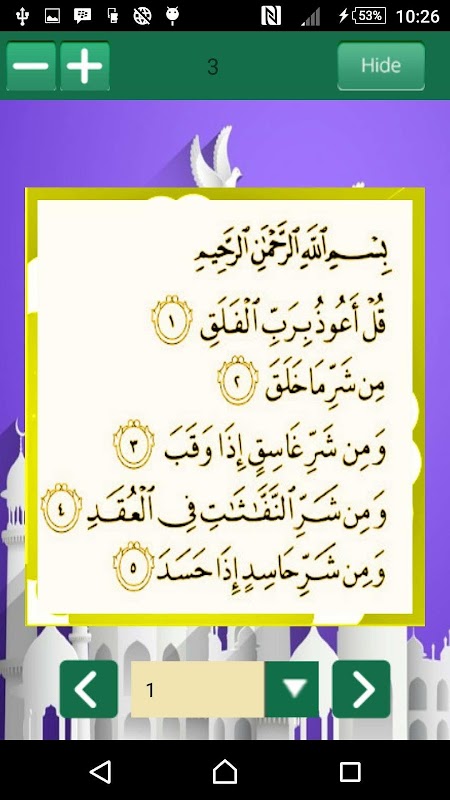 53% 10:26
3
Hide
بِسْمِ ٱللَّهِ ٱلرَّحْمَٰنِ ٱلرَّحِيمِ
قُلْ أَعُوذُ بِرَبِّ ٱلْفَلَقِ ١
مِن شَرِّ مَا خَلَقَ ٢
وَمِن شَرِّ غَاسِقٍ إِذَا وَقَبَ ٣
وَمِن شَرِّ ٱلنَّفَّٰثَٰتِ فِى ٱلْعُقَدِ ٤
وَمِن شَرِّ حَاسِدٍ إِذَا حَسَدَ ٥
1